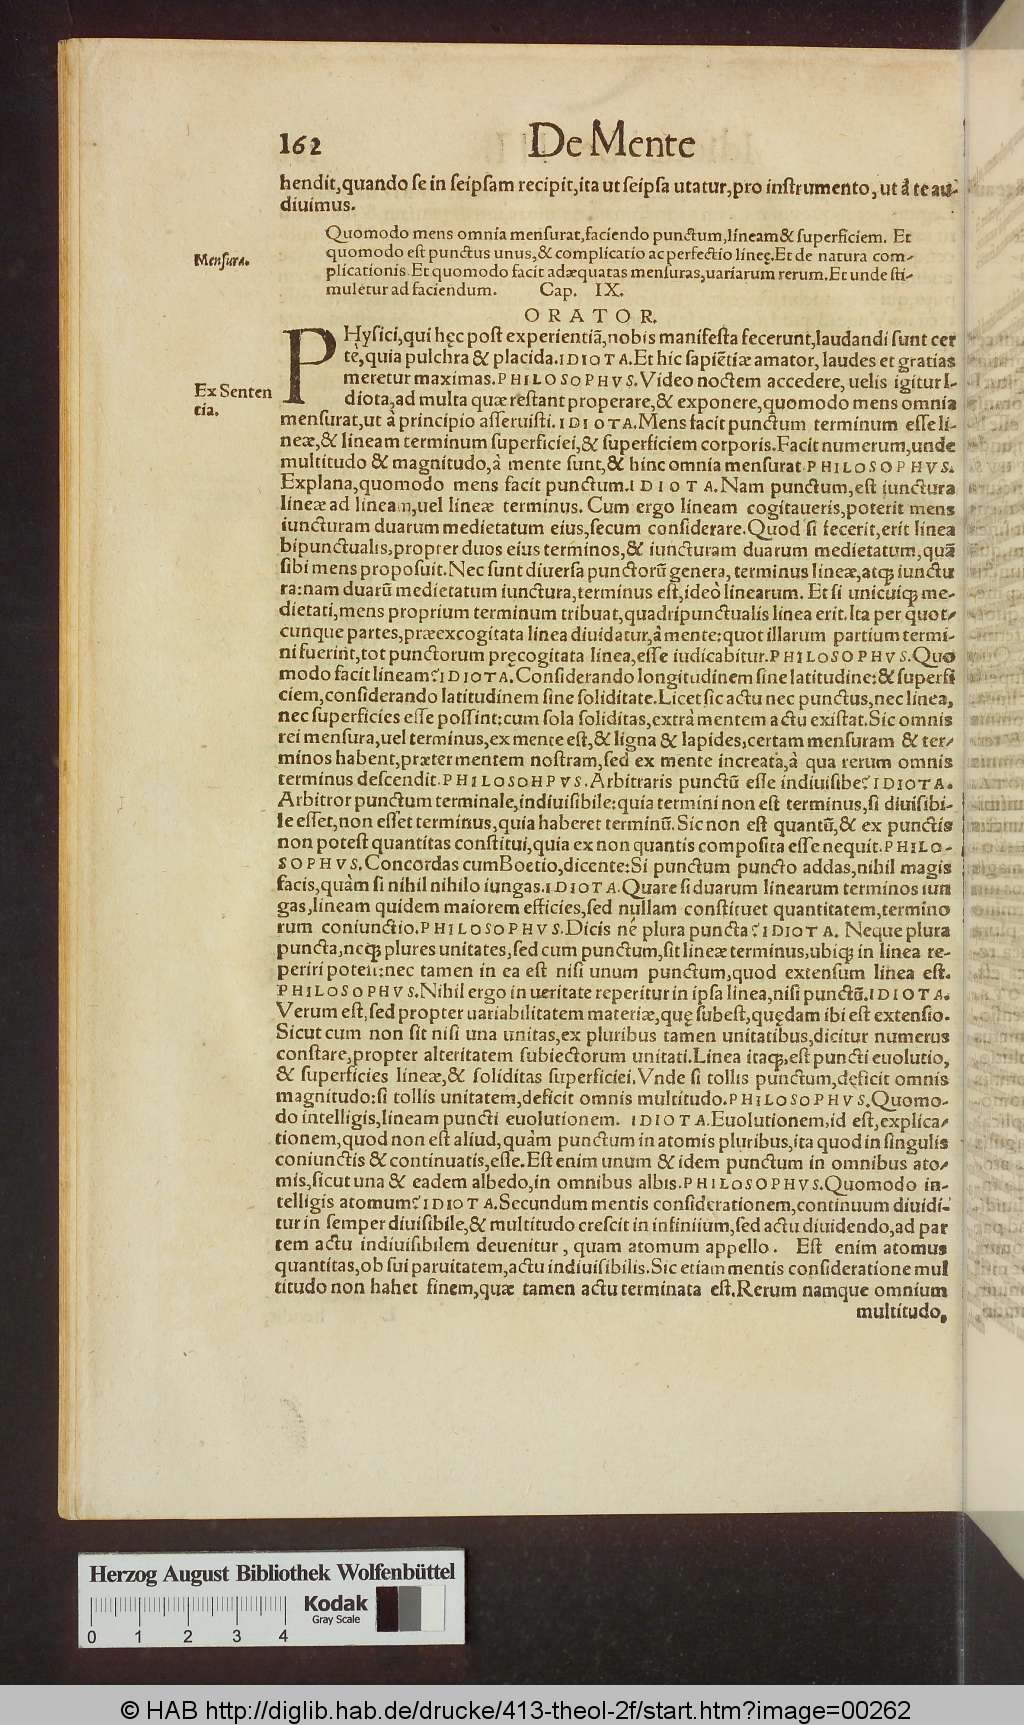 162 De Mente
hendit, quando se in seipsam recipit, ita ut seipsa utatur, pro instrumento, ut à te au-
diuimus.
Quomodo mens omnia mensurat, faciendo punctum, lineam & superficiem. Et
Mensura.
quomodo est punctus unus, & complicatio ac perfectio lineę. Et de natura com-
plicationis. Et quomodo facit adæquatas mensuras, uariarum rerum. Et unde sti-
muletur ad faciendum. Cap. IX.
ORATOR.
PHysici, qui hęc post experientiã, nobis manifesta fecerunt, laudandi sunt cer
tè, quia pulchra & placida. IDIOTA. Et hic sapiẽtiæ amator, laudes et gratias
meretur maximas. PHILOSOPHVS. Video noctem accedere, uelis igitur I-
Ex Senten
tia.
diota, ad multa quæ restant properare, & exponere, quomodo mens omnia
mensurat, ut à principio asseruisti. IDIOTA. Mens facit punctum terminum esse li-
neæ, & lineam terminum superficiei, & superficiem corporis. Facit numerum, unde
multitudo & magnitudo, à mente sunt, & hinc omnia mensurat PHILOSOPHVS.
Explana, quomodo mens facit punctum. IDIOTA. Nam punctum, est iunctura
lineæ ad lineam, uel lineæ terminus. Cum ergo lineam cogitaueris, poterit mens
iuncturam duarum medietatum eius, secum considerare. Quod si fecerit, erit linea
bipunctualis, propter duos eius terminos, & iuncturam duarum medietatum, quã
sibi mens proposuit. Nec sunt diuersa punctorũ genera, terminus lineæ, atq; iunctu
ra: nam duarũ medietatum iunctura, terminus est, ideò linearum. Et si unicuiq; me-
dietati, mens proprium terminum tribuat, quadripunctualis linea erit. Ita per quot-
cunque partes, præexcogitata linea diuidatur, à mente: quot illarum partium termi-
ni fuerint, tot punctorum pręcogitata linea, esse iudicabitur. PHILOSOPHVS. Quo
modo facit lineam? IDIOTA. Considerando longitudinem sine latitudine: & superfi
ciem, considerando latitudinem sine soliditate. Licet sic actu nec punctus, nec linea,
nec superficies esse possint: cum sola soliditas, extrà mentem actu existat. Sic omnis
rei mensura, uel terminus, ex mente est, & ligna & lapides, certam mensuram & ter-
minos habent, præter mentem nostram, sed ex mente increata, à qua rerum omnis
terminus descendit. PHILOSOHPVS. Arbitraris punctũ esse indiuisibe? IDIOTA.
Arbitror punctum terminale, indiuisibile: quia termini non est terminus, si diuisibi-
le esset, non esset terminus, quia haberet terminũ. Sic non est quantũ, & ex punctis
non potest quantitas constitui, quia ex non quantis composita esse nequit. PHILO-
SOPHVS. Concordas cum Boetio, dicente: Si punctum puncto addas, nihil magis
facis, quàm si nihil nihilo iungas. IDIOTA. Quare si duarum linearum terminos iun
gas, lineam quidem maiorem efficies, sed nullam constituet quantitatem, termino
rum coniunctio. PHILOSOPHVS. Dicis né plura puncta? IDIOTA. Neque plura
puncta, neq; plures unitates, sed cum punctum, sit lineæ terminus, ubiq; in linea re-
periri potest: nec tamen in ea est nisi unum punctum, quod extensum linea est.
PHILOSOPHVS. Nihil ergo in ueritate reperitur in ipsa linea, nisi punctũ. IDIOTA.
Verum est, sed propter uariabilitatem materiæ, quę subest, quędam ibi est extensio.
Sicut cum non sit nisi una unitas, ex pluribus tamen unitatibus, dicitur numerus
constare, propter alteritatem subiectorum unitati. Linea itaq;, est puncti euolutio,
& superficies lineæ, & soliditas superficiei. Vnde si tollis punctum, dęficit omnis
magnitudo: si tollis unitatem, deficit omnis multitudo. PHILOSOPHVS. Quomo-
do intelligis, lineam puncti euolutionem. IDIOTA. Euolutionem, id est, explica-
tionem, quod non est aliud, quàm punctum in atomis pluribus, ita quod in singulis
coniunctis & continuatis, esse. Est enim unum & idem punctum in omnibus ato-
mis, sicut una & eadem albedo, in omnibus albis. PHILOSOPHVS. Quomodo in-
telligis atomum? IDIOTA. Secundum mentis considerationem, continuum diuidi-
tur in semper diuisibile, & multitudo crescit in infinitum, sed actu diuidendo, ad par
tem actu indiuisibilem deuenitur, quam atomum appello. Est enim atomus
quantitas, ob sui paruitatem, actu indiuisibilis. Sic etiam mentis consideratione mul
titudo non habet finem, quæ tamen actu terminata est. Rerum namque omnium
multitudo,
Herzog August Bibliothek Wolfenbüttel
Kodak
Gray Scale
0 1 2 3 4
© HAB http://diglib.hab.de/drucke/413-theol-2f/start.htm?image=00262